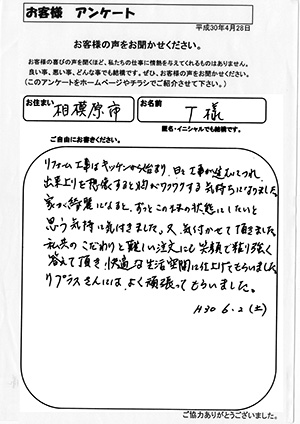 お客様 アンケート
平成30年4月28日
お客様の声をお聞かせください。
お客様の喜びの声を聞くほど、私たちの仕事に情熱を与えてくれるものはありません。
良い事、悪い事、どんな事でも結構です。ぜひ、お客様の声をお聞かせください。
(このアンケートをホームページやチラシでご紹介させて下さい。)
お住まい 相模原市 お名前 T様
匿名・イニシャルでも結構です。
ご自由にお書きください。
リフォーム工事はキッチンから始まり、日に工事が進むにつれ、
出来上りを想像すると好がワクワクする気持ちになりました。
家が綺麗になると、ずっとこのままの状態にしたいと
思う気持に気付きました。又、気付かせて頂きました。
私共のこだわりと難しい注文にも笑顔で粘り強く
答えて頂き、快適な生活空間に仕上げてもらいました。
リプラスさんには、よく頑張ってもらいました。
H30 6.2(土)
ご協力ありがとうございました。